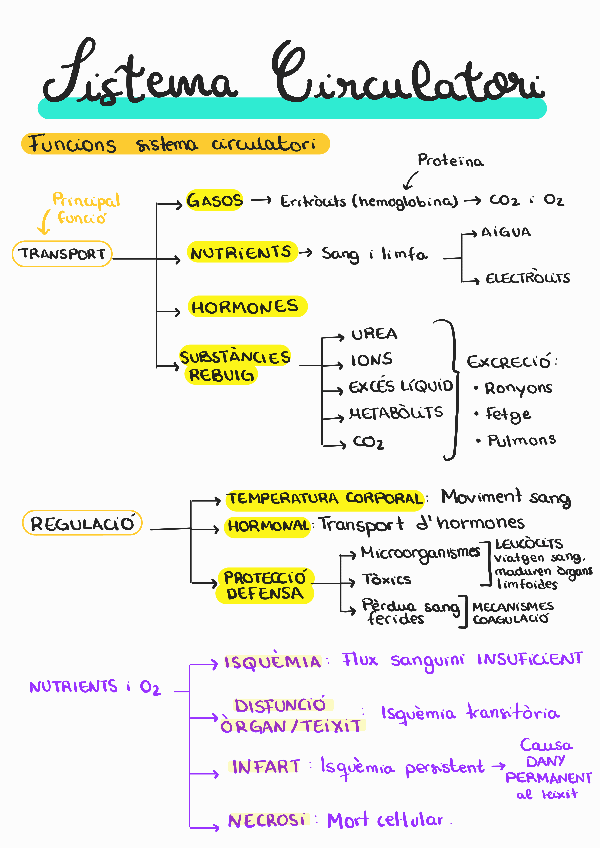 Sistema Circulatori
Funcions sistema circulatori
Proteïna
Principal
funció
TRANSPORT
GASOS → Eritròcits (hemoglobina) → CO2 i O2
NUTRIENTS → Sang i limfa
AIGUA
ELECTRÒLITS
HORMONES
SUBSTÀNCIES
REBUIG
UREA
IONS
EXCÉS LÍQUID
METABÒLITS
CO2
EXCRECIÓ:
• Ronyons
• Fetge
• Pulmons
REGULACIÓ
TEMPERATURA CORPORAL: Moviment sang
HORMONAL: Transport d'hormones
PROTECCIÓ
DEFENSA
Microorganismes
Tòxics
LEUCÒCITS
viatgen sang,
maduren òrgans
limfoides
Pèrdua sang
ferides
MECANISMES
COAGULACIÓ
NUTRIENTS i O2
ISQUÈMIA: Flux sanguini INSUFICIENT
DISFUNCIÓ
ÒRGAN/TEIXIT: Isquèmia transitòria
INFART: Isquèmia persistent →
Causa
DANY
PERMANENT
al teixit
NECROSI: Mort cel·lular.